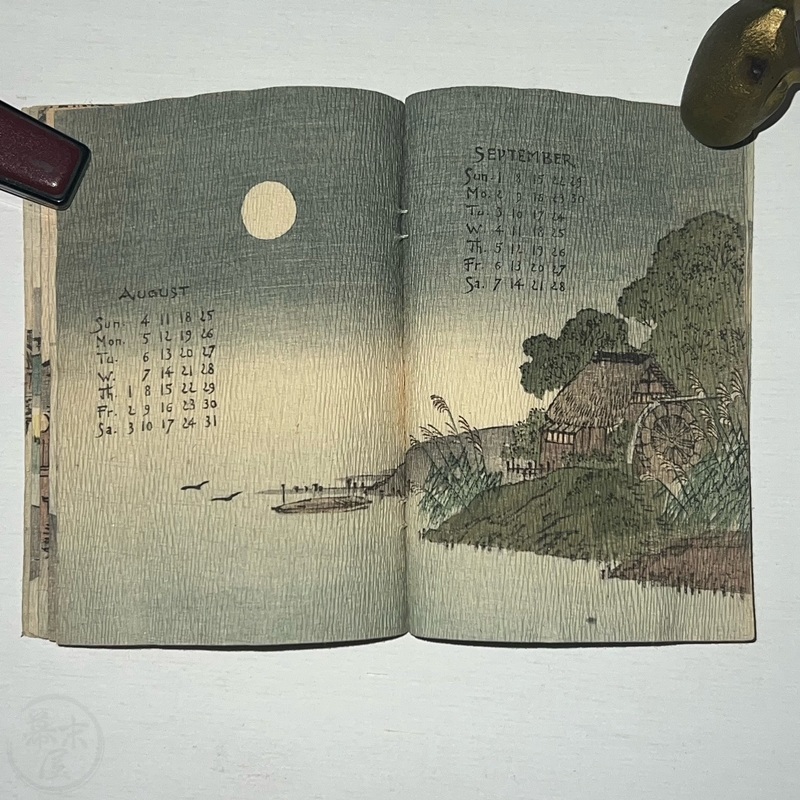 AUGUST
Sun. 4 11 18 25
Mon. 5 12 19 26
Tu. 6 13 20 27
W. 7 14 21 28
Th. 1 8 15 22 29
Fr. 2 9 16 23 30
Sa. 3 10 17 24 31
SEPTEMBER
Sun. 1 8 15 22 29
Mo. 2 9 16 23 30
Tu. 3 10 17 24
W. 4 11 18 25
Th. 5 12 19 26
Fr. 6 13 20 27
Sa. 7 14 21 28
幕末
屋